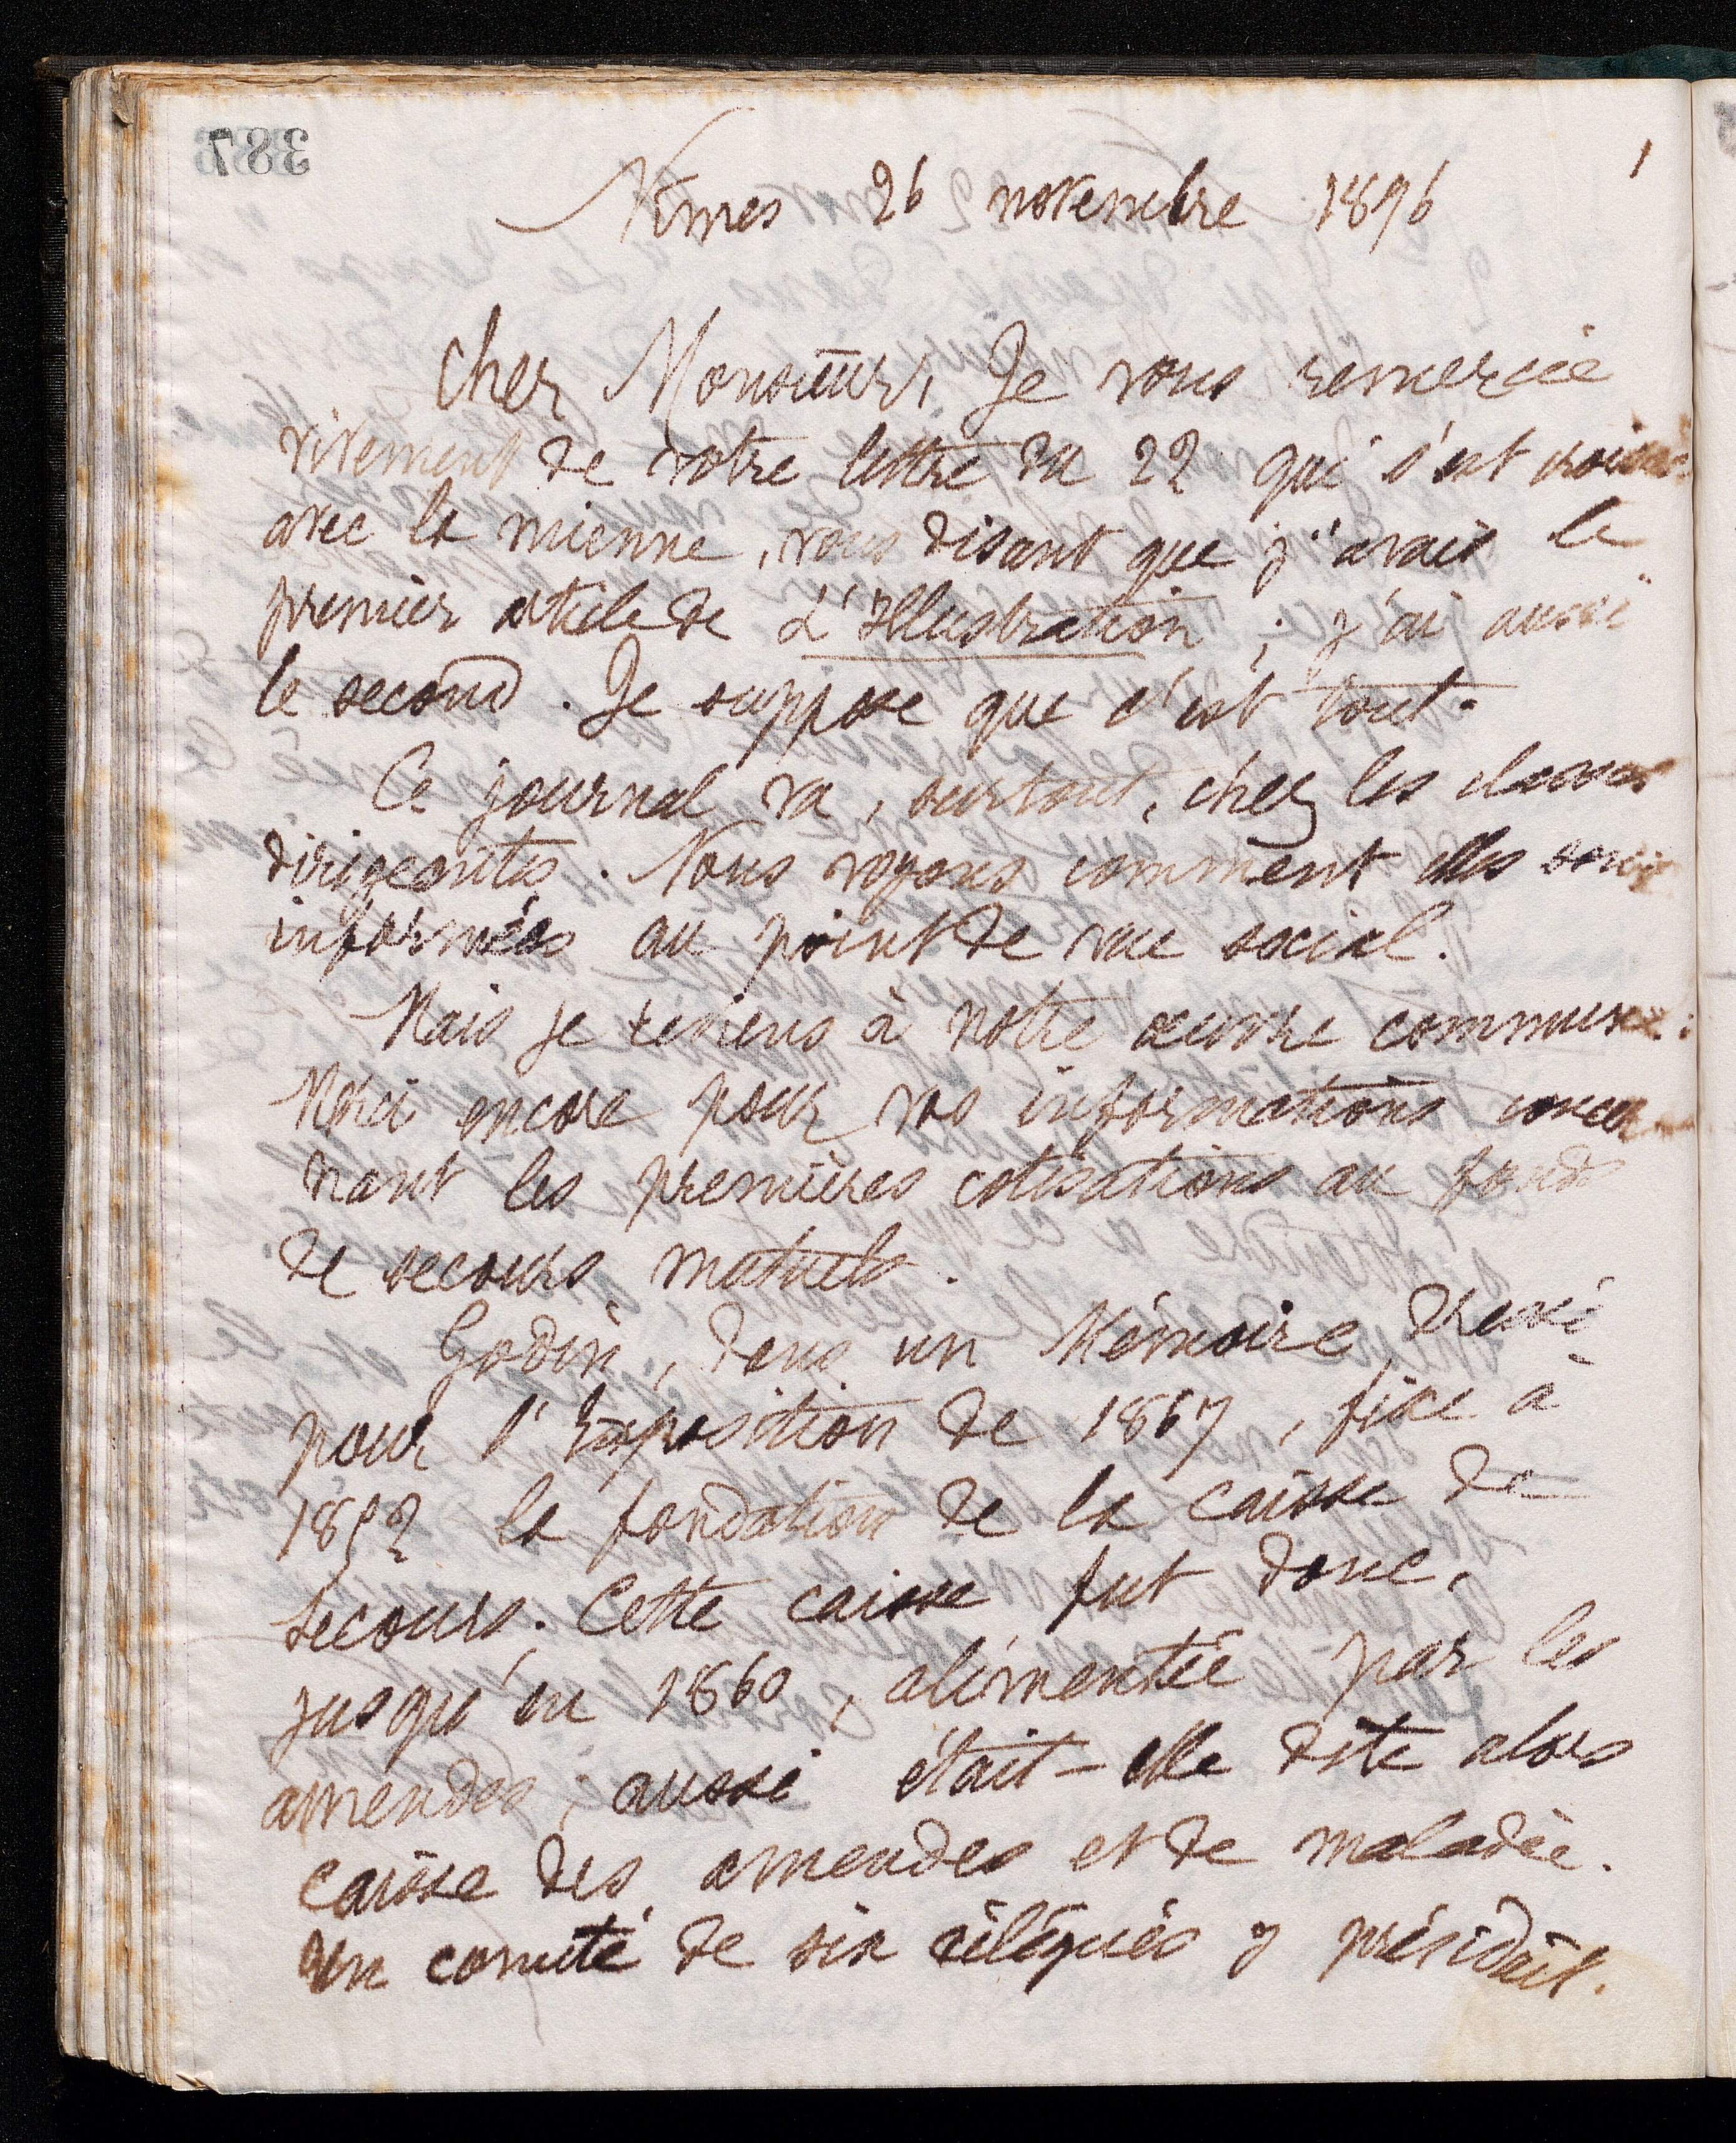 387
1
Nîmes 26 novembre 1896
Cher Monsieur, Je vous remercie
vivement de votre lettre du 22 qui s'est croisée
avec la mienne, vous disant que j'avais le
premier article de L'Illustration ; j'ai aussi
le second. Je suppose que c'est tout.
Ce journal va, surtout, chez les classes
dirigeantes. Nous voyons comment elles sont
informées au point de vue social.
Mais je reviens à notre œuvre commune :
Merci encore pour vos informations concer
nant les premières cotisations au fonds
de secours mutuels.
Godin, dans un Mémoire dressé
pour l'Exposition de 1867, fixe à
1852 la fondation de la caisse de
secours. Cette caisse fut donc,
jusqu'en 1860, alimentée par les
amendes ; aussi était-elle dite alors
caisse des amendes et de maladie.
Un comité de six délégués y présidait.